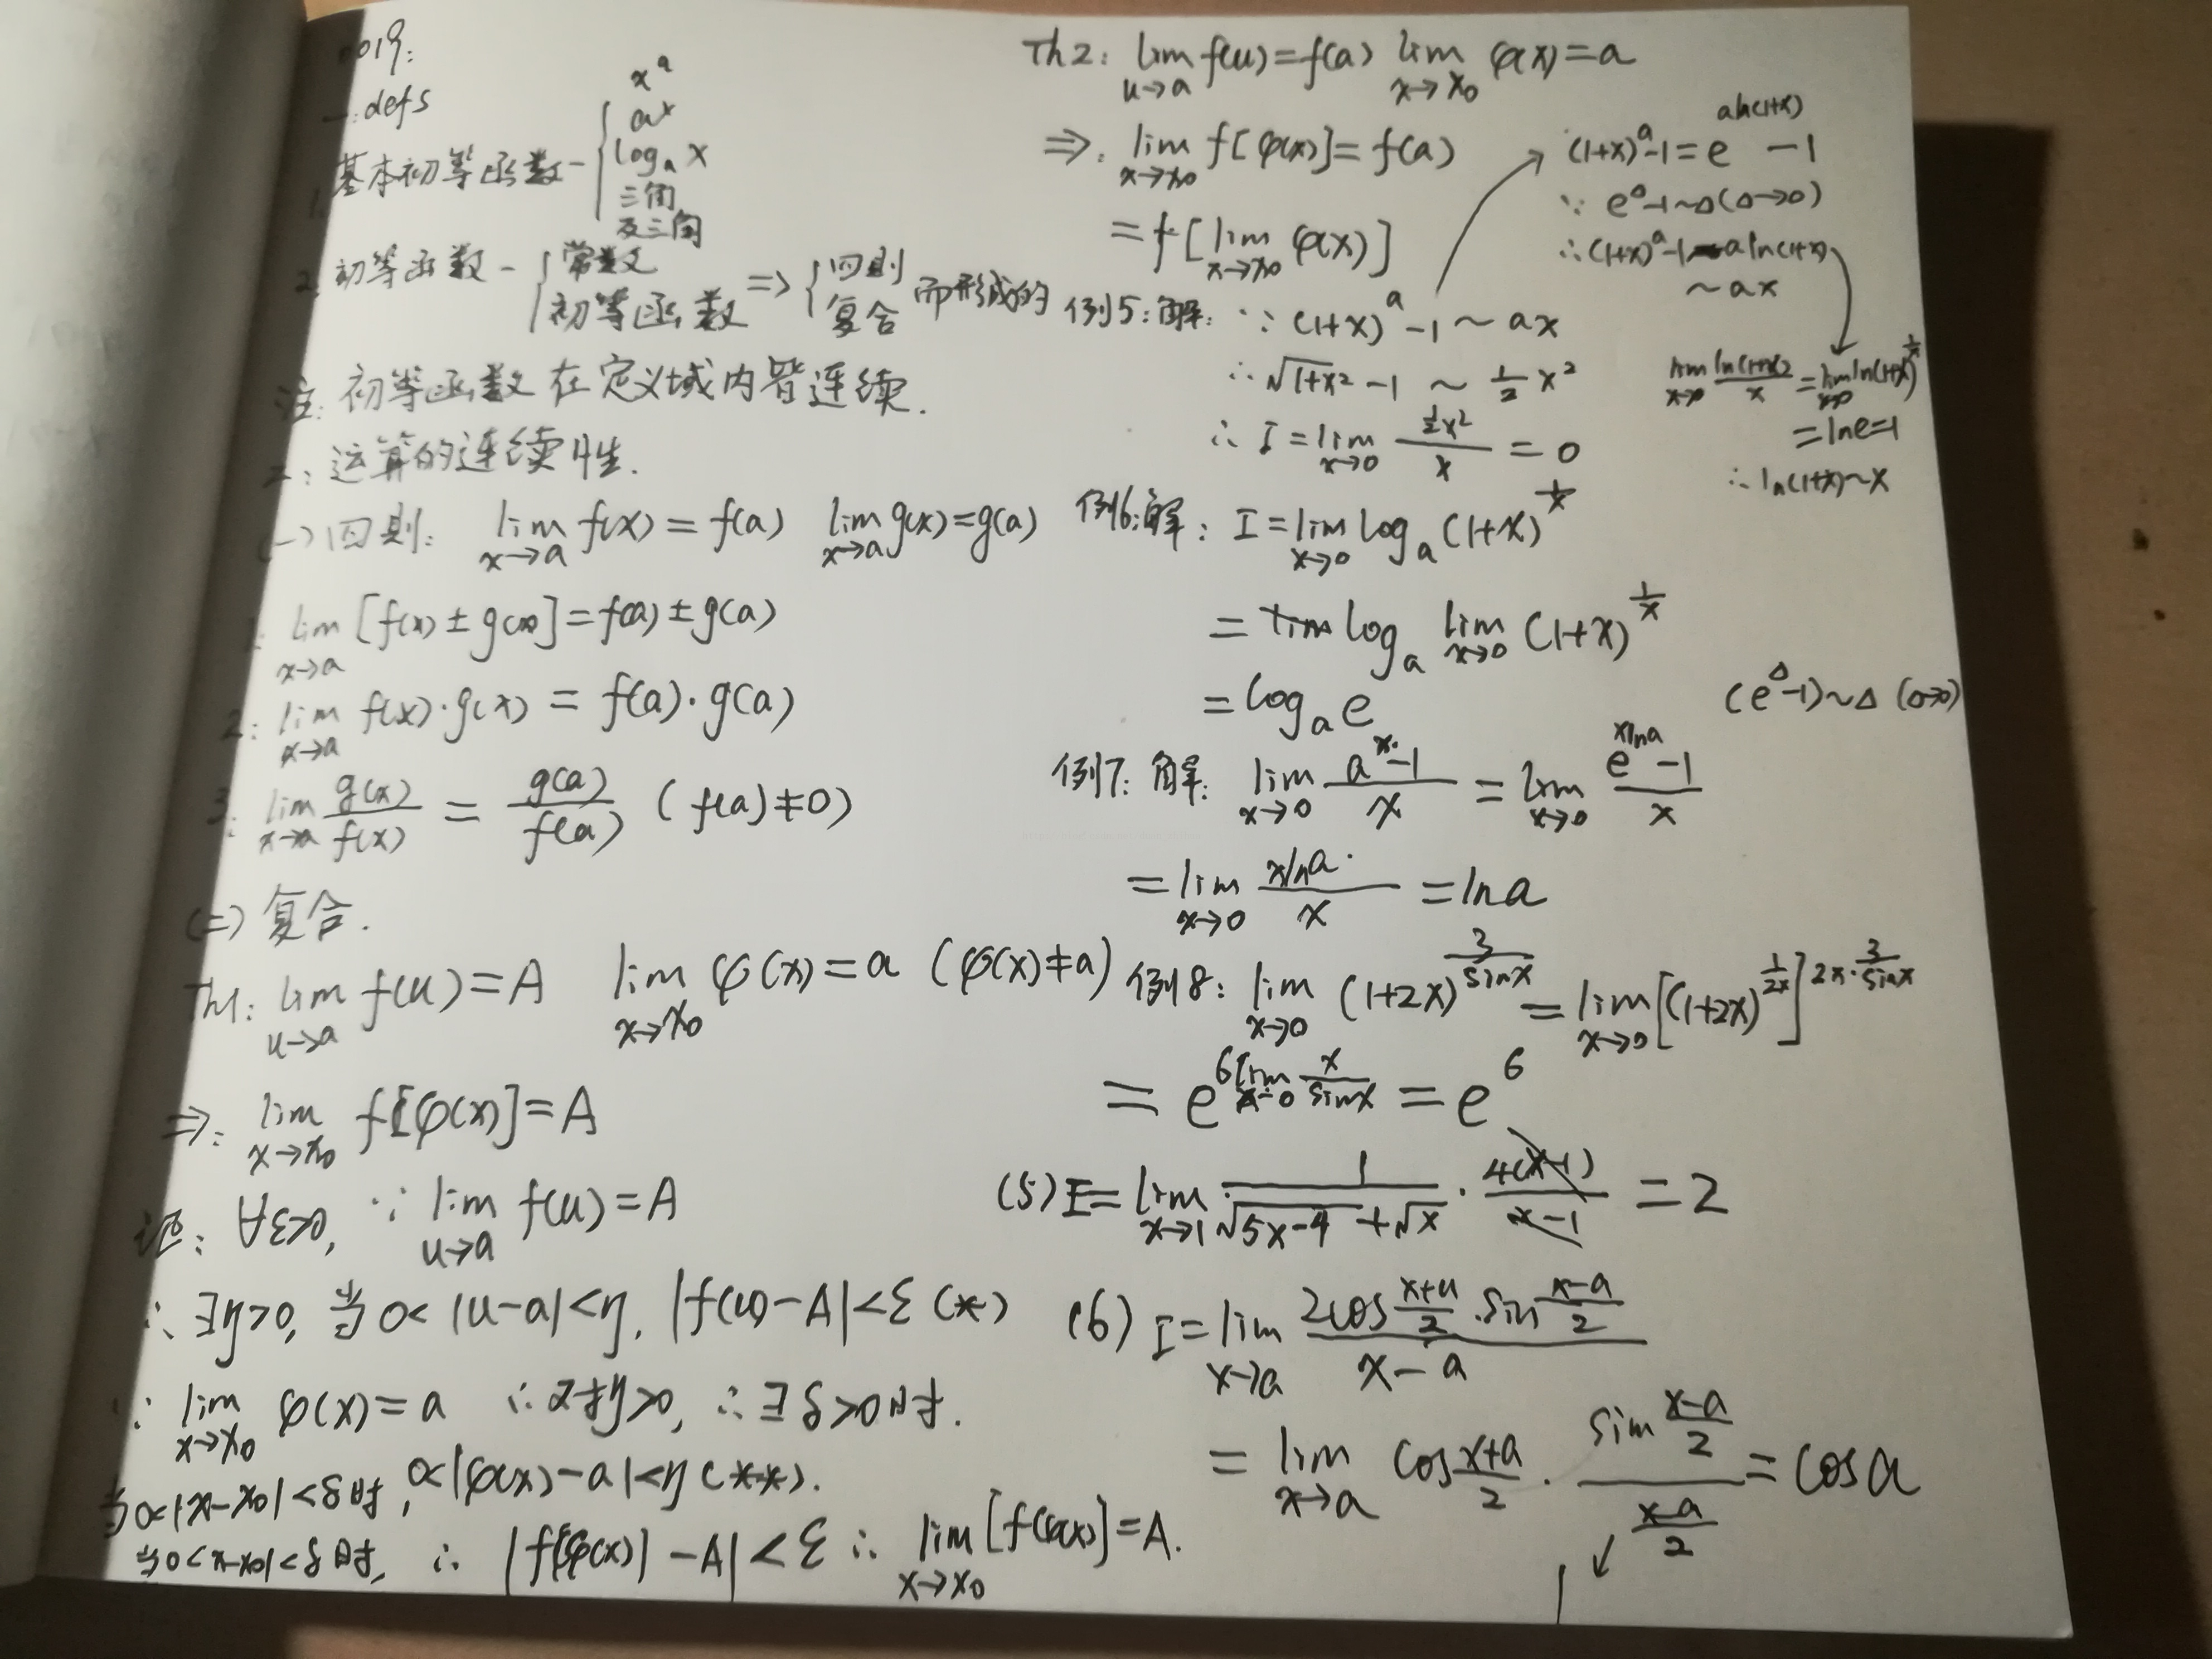 no19:
一:defs
1. 基本初等函数-{ x^a
a^x
log_a x
三角
反三角
2. 初等函数-{ 常数
初等函数 => { 四则
复合 而形成的
注: 初等函数在定义域内皆连续.
二: 运算的连续性.
(一) 四则: lim_{x→a} f(x) = f(a) lim_{x→a} g(x) = g(a)
1: lim_{x→a} [f(x) ± g(x)] = f(a) ± g(a)
2: lim_{x→a} f(x)·g(x) = f(a)·g(a)
3: lim_{x→a} g(x)/f(x) = g(a)/f(a) (f(a)≠0)
(二) 复合.
Th1: lim_{u→a} f(u) = A lim_{x→x₀} φ(x) = a (φ(x)≠a)
⇒: lim_{x→x₀} f[φ(x)] = A
证: ∀ε>0, ∵ lim_{u→a} f(u) = A
∴ ∃η>0, 当 0<|u-a|<η, |f(u)-A|<ε (*)
∵ lim_{x→x₀} φ(x) = a ∴ 对η>0, ∴ ∃δ>0时.
当0<|x-x₀|<δ时, 0<|φ(x)-a|<η (**).
当0<|x-x₀|<δ时, ∴ |f[φ(x)]-A|<ε ∴ lim_{x→x₀} [f(φ(x)]=A.
Th2: lim_{u→a} f(u) = f(a) lim_{x→x₀} φ(x) = a
⇒: lim_{x→x₀} f[φ(x)] = f(a)
= f[lim_{x→x₀} φ(x)]
(1+x)^a-1 = e^{aln(1+x)} -1
∵ e^Δ-1~Δ(Δ→0)
∴ (1+x)^a-1~aln(1+x)
~ax
例5:解: ∵ (1+x)^a-1 ~ ax
∴ √(1+x²)-1 ~ 1/2 x²
∴ I = lim_{x→0} (1/2 x²)/x = 0
lim_{x→0} ln(1+x)/x = lim_{x→0} ln(1+x)^{1/x}
= lne=1
∴ ln(1+x)~x
例6:解: I = lim_{x→0} log_a (1+x)^{1/x}
= log_a lim_{x→0} (1+x)^{1/x}
= log_a e
(e^Δ-1)~Δ (Δ→0)
例7: 解: lim_{x→0} (a^x-1)/x = lim_{x→0} (e^{xlna}-1)/x
= lim_{x→0} xlna/x = lna
例8: lim_{x→0} (1+2x)^{3/sinx} = lim_{x→0} [(1+2x)^{1/2x}]^{2x·3/sinx}
= e^{6lim_{x→0} x/sinx} = e^6
(5) I = lim_{x→1} 1/(√(5x-4)+√x) · 4(x-1)/(x-1) = 2
(6) I = lim_{x→a} (2cos (x+a)/2 · sin (x-a)/2)/(x-a)
= lim_{x→a} cos (x+a)/2 · (sin (x-a)/2)/((x-a)/2) = cosa
↙
1